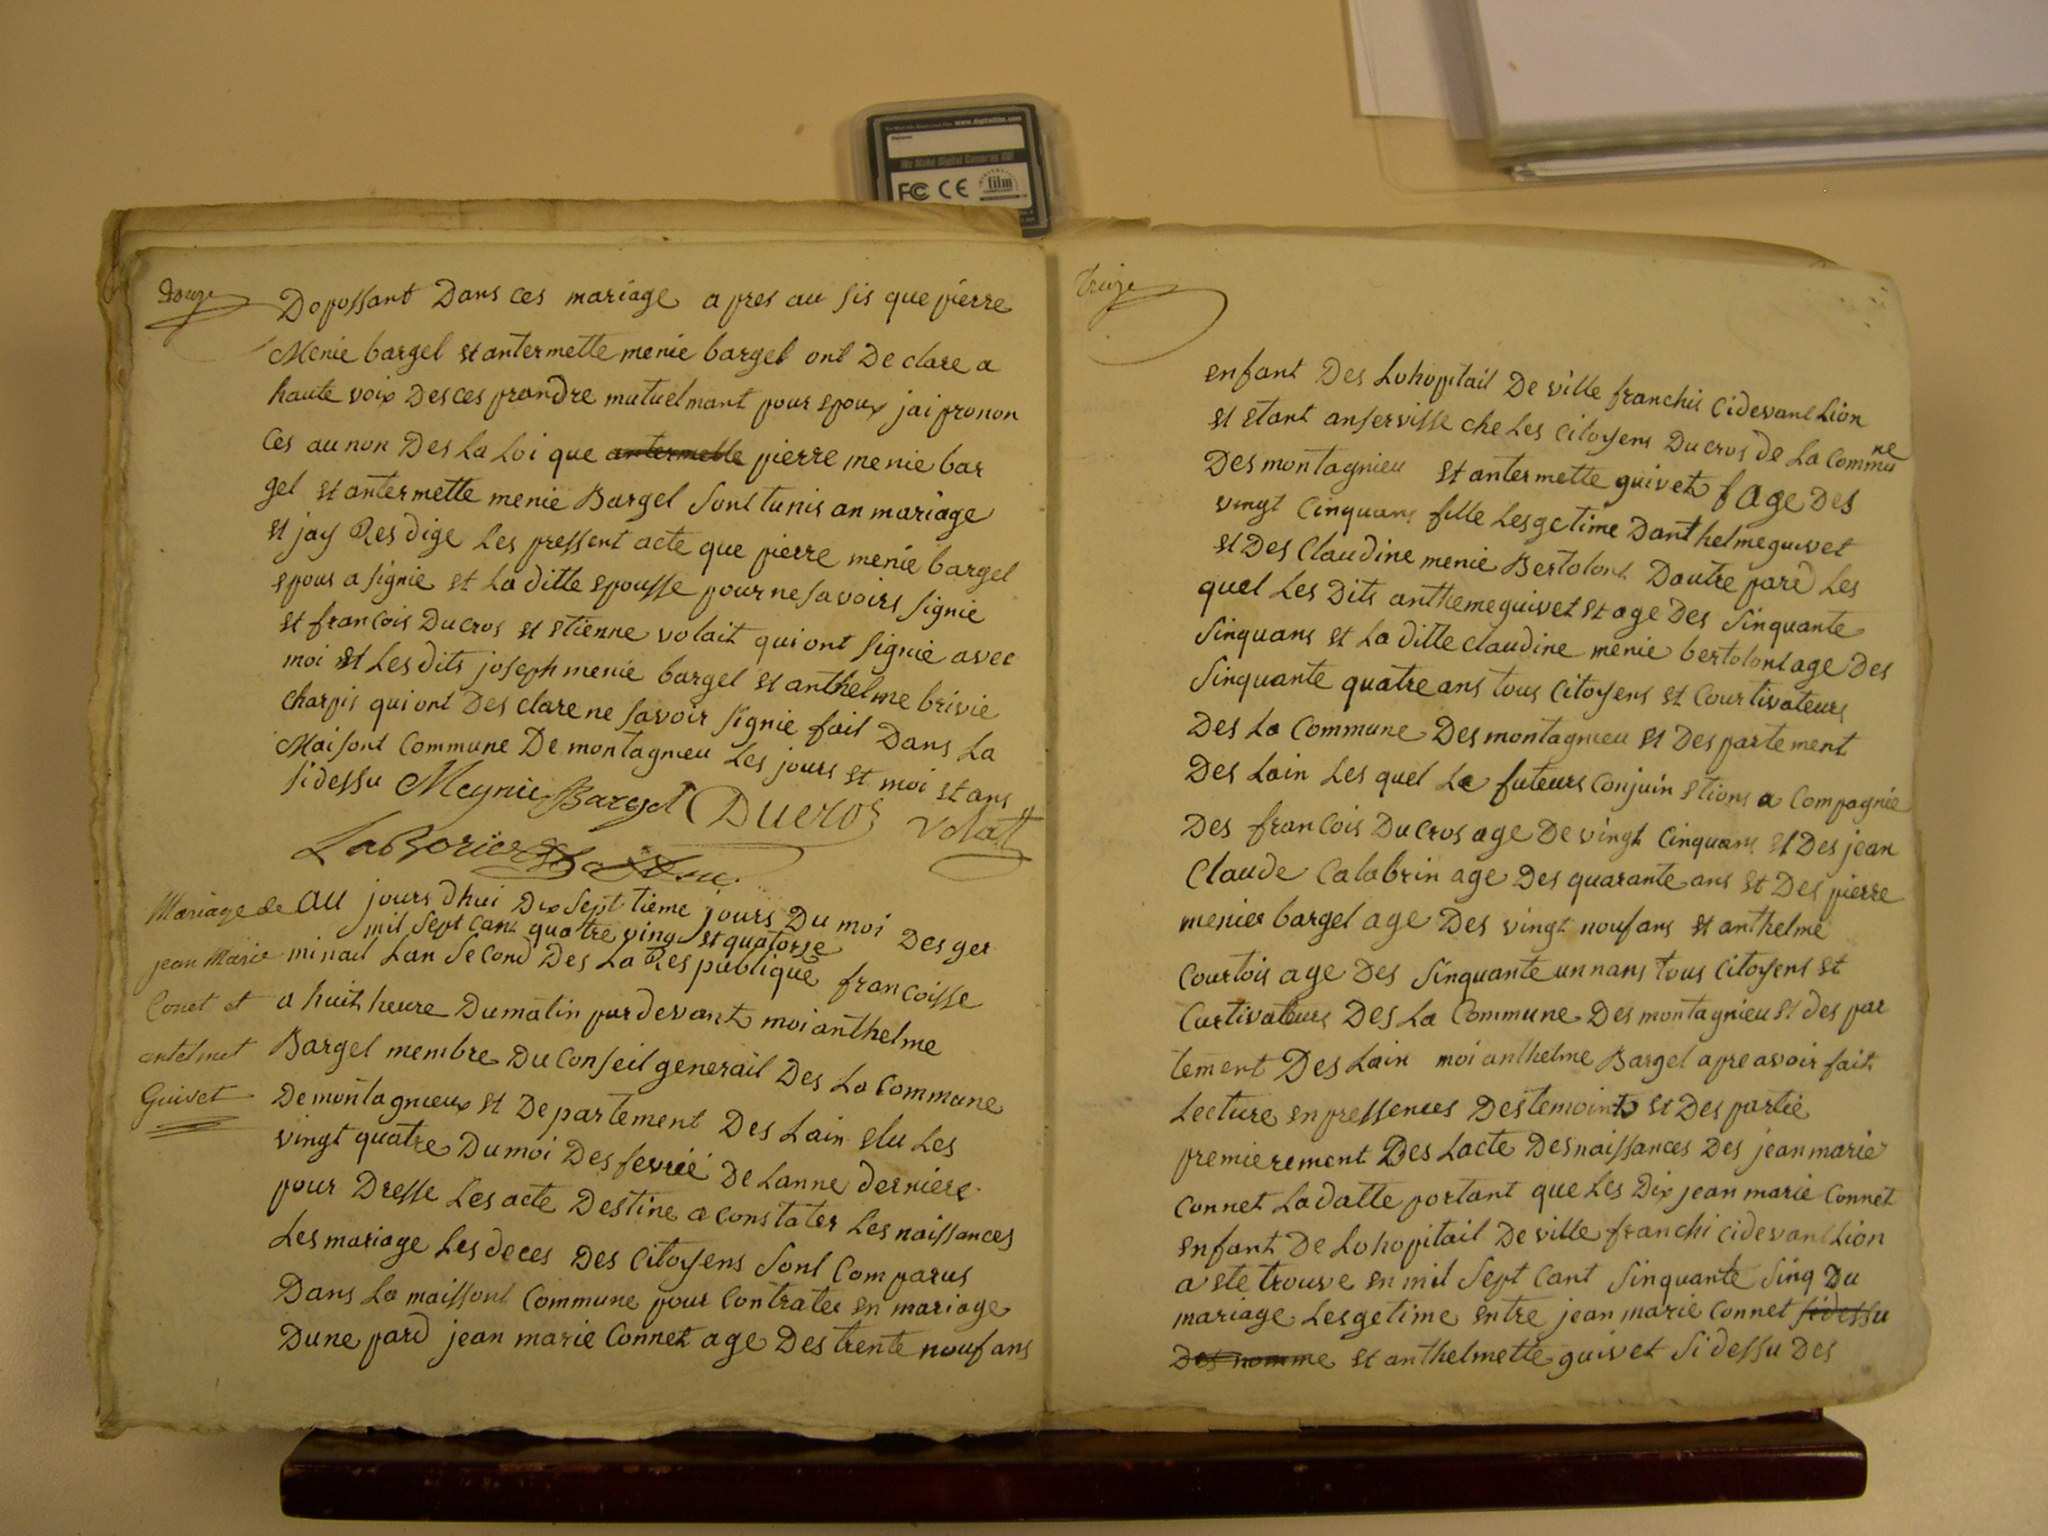 www.digitalfilm.com
We Make Digital Cameras GO
FC CE film
Douze
Dopossant Dans ces mariage apres au sis que pierre
Menie bargel et antermette menie bargel ont De clare a
haute voix Desces prandre mutuelmant pour epoux jai pronon
Ces au non Des La Loi que antermette pierre menie bar
gel et antermette menie Bargel sont tunis an mariage
et jay Resdige Les pressent acte que pierre menie bargel
epous a signie et La ditte epousse pour ne savoirs signie
et francois Ducros et etienne volait qui ont signie avec
moi et Les dits joseph menie bargel et anthelme brivie
charpis qui ont Des clare ne savoir signie fait Dans La
Maisont Commune De montagnieu Les jours et moi et ans
sidessu Meynie Bargel Ducros Volatt
Mariage de
jean Marie
Conet et
antelmet
Guivet
au jours dhui Dix sept tieme jours Du moi Des ger
mil sept cant quatre ving et quatorse
minail Lan second Des La Respublique francoisse
a huit heure Du matin par devant moi anthelme
Bargel membre Du Conseil generail Des La Commune
De montagnieux et De partement Des Lain elu Les
vingt quatre Du moi Des fevrié De Lanne derniere
pour Dresse Les acte Destine a constater Les naissances
Les mariage Les deces Des Citoyens sont Comparus
Dans La maissont Commune pour Contrater en mariage
Dune pard jean marie Connet age Des trente nouf ans
Treize
enfant Des Lohopitail De ville franchis cidevant Lion
et etant anservisse che Les Citoyens Ducros de La Commune
Des montagnieu et antermette guivet f age Des
vingt Cinquans fille Lesgetime Danthelme guivet
et Des Claudine menie Bertolont Dautre pard Les
quel Les Dits antheme guivet et age Des sinquante
sinquans et La ditte claudine menie bertolont age Des
sinquante quatre ans tous Citoyens et Courtivateurs
Des La Commune Des montagnieu et Des partement
Des Lain Les quel La futeurs Conjuin etions a Compagnie
Des francois Ducros age De vingt Cinquans et Des jean
Claude Calabrin age Des quarante ans et Des pierre
menier bargel age Des vingt noufans et anthelme
Courtois age Des sinquante unnans tous Citoyens et
Curtivateurs Des La Commune Des montagnieu et des par
tement Des Lain moi anthelme Bargel apre avoir fait
Lecture en pressences Des temoints et Des partie
premierement Des Lacte Des naissances Des jean marie
Connet La datte portant que Les Dix jean marie Connet
enfant De Lohopitail De ville franchi cidevant Lion
a ete trouve en mil sept cant sinquante sinq Du
mariage Lesgetime entre jean marie Connet sidessu
Des nomme et anthelmette guivet sidessu Des